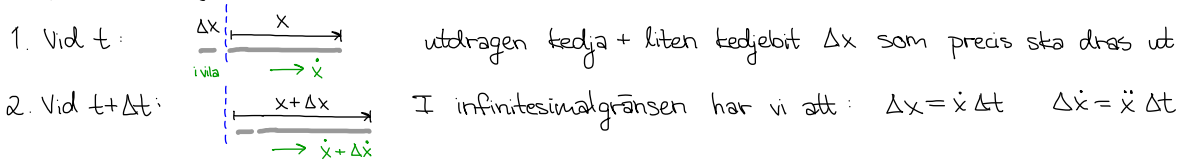 1. Vid t: Δx x utdragen kedja + liten kedjebit Δx som precis ska dras ut
i vila → ẋ
2. Vid t+Δt: x+Δx I infinitesimalgränsen har vi att: Δx = ẋ Δt Δẋ = ẍ Δt
→ ẋ + Δẋ